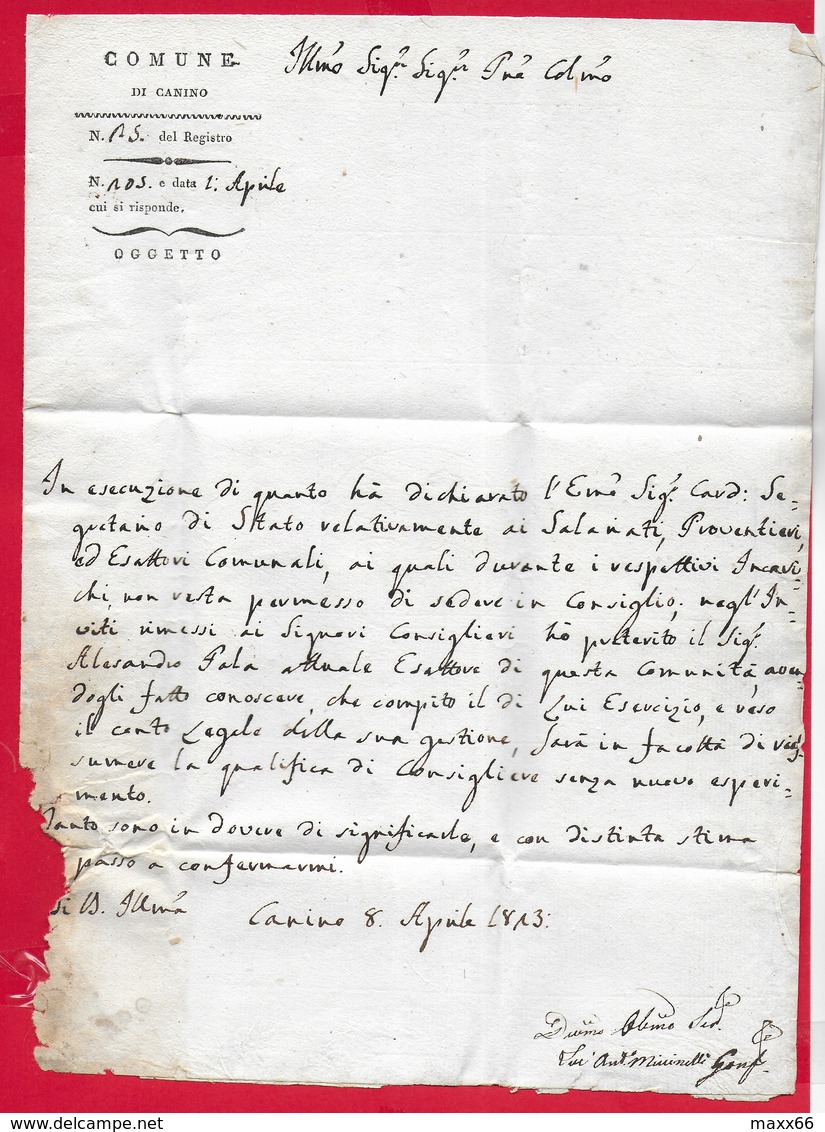 COMUNE
DI CANINO
N. 15. del Registro
N. 105. e data 1: Aprile
cui si risponde.
OGGETTO
Illmo Sigr. Sigr Pne Colmo
In esecuzione di quanto ha dichiarato l'Emo Sigr. Card: Se-
gretario di Stato relativamente ai Salariati, Proventieri,
ed Esattori Comunali, ai quali durante i respettivi Incari-
chi, non resta permesso di sedere in Consiglio; negl'In-
viti rimessi ai Signori Consiglieri ho preterito il Sigr.
Alesandro Pala attuale Esattore di questa Comunità, aven-
dogli fatto conoscere, che compito il di Lui Esercizio, e reso
il conto Legale della sua gestione, sarà in facoltà di rias-
sumere la qualifica di Consigliere senza nuovo esperi-
mento.
Tanto sono in dovere di significarle, e con distinta stima
passo a confermarmi.
Di V. Illma
Canino 8. Aprile 1813:
Dvmo Obmo Sed.
Antº Miccinelli Gonf.
maxx66
delcampe.net